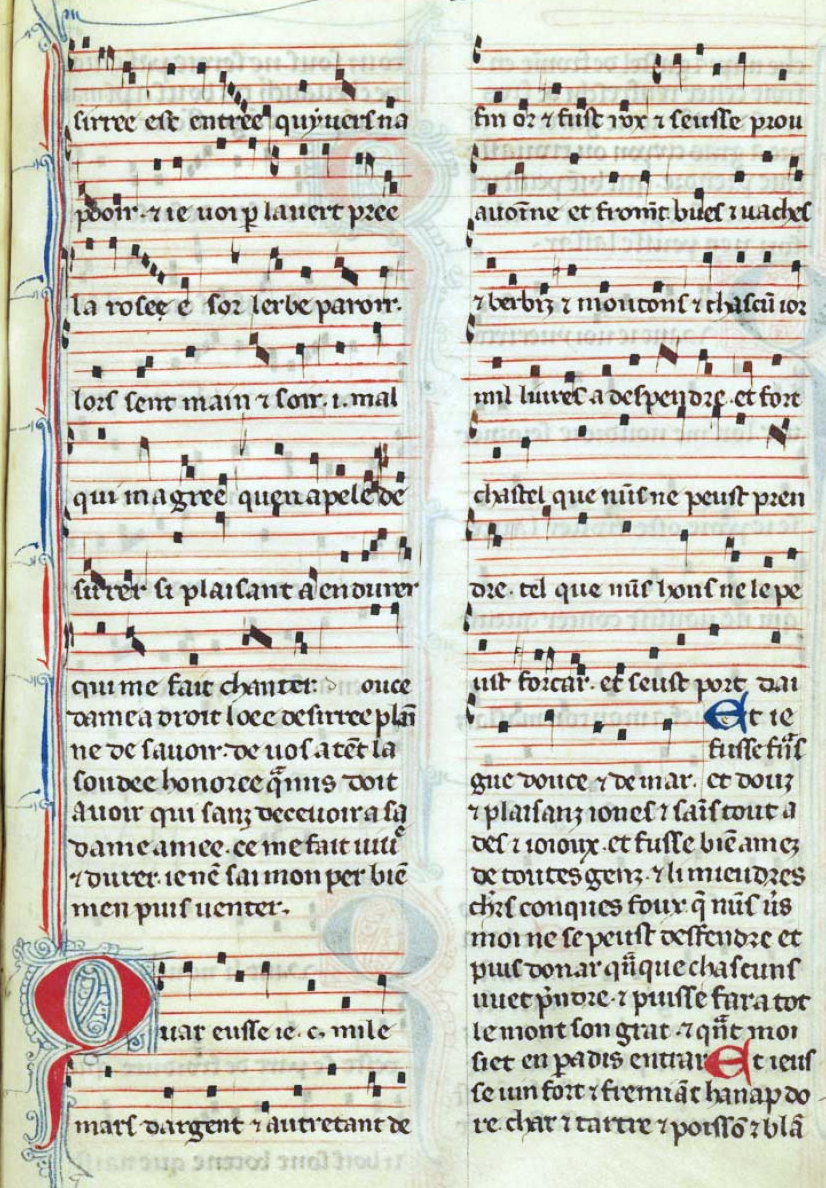 sirree est entree quyuers na
pooir. ⁊ ie uoi ꝑ lauert pree
la rosee e sor lerbe paroir.
lors sent main ⁊ soir. i. mal
qui magree quen apele de
sirrer si plaisant a endurer
qui me fait chanter. ouce
dame a droit loee desirree plai
ne de sauoir. de uos atēt la
soudee honoree q̄ nus doit
auoir qui sanz deceuoir a sa
dame amee. ce me fait
⁊ durer. ie nē sai mon per biē
men puis uenter.
Quar eusse ie. c. mile
mars dargent ⁊ autretant de
fin or ⁊ fust rox ⁊ seusse prou
auoine et fromt bues ⁊ uaches
⁊ berbiz ⁊ moutons ⁊ chascū ior
mil liures a despendre. et fort
chastel que nūs ne peust pren
dre. tel que nus hons ne le pe
ust forcar. et seust port dai
Et ie
fusse
gue douce ⁊ de mar. et douz
⁊ plaisanz iones ⁊ sais tout a
des ⁊ ioioux. et fusse biē amez
de toutes genz. ⁊ li mieudres
chr̄s conques foux. q̄ nūs ūs
moi ne se peust deffendre et
puis donar qn̄que chascuns
uuet pn̄dre. ⁊ puisse fara tot
le mont son grat. ⁊ qn̄t moi
siet en ꝑadis entrar Et ieus
se iun fort ⁊ fremiāt hanap do
re. char ⁊ tartre ⁊ poissō ⁊ blā